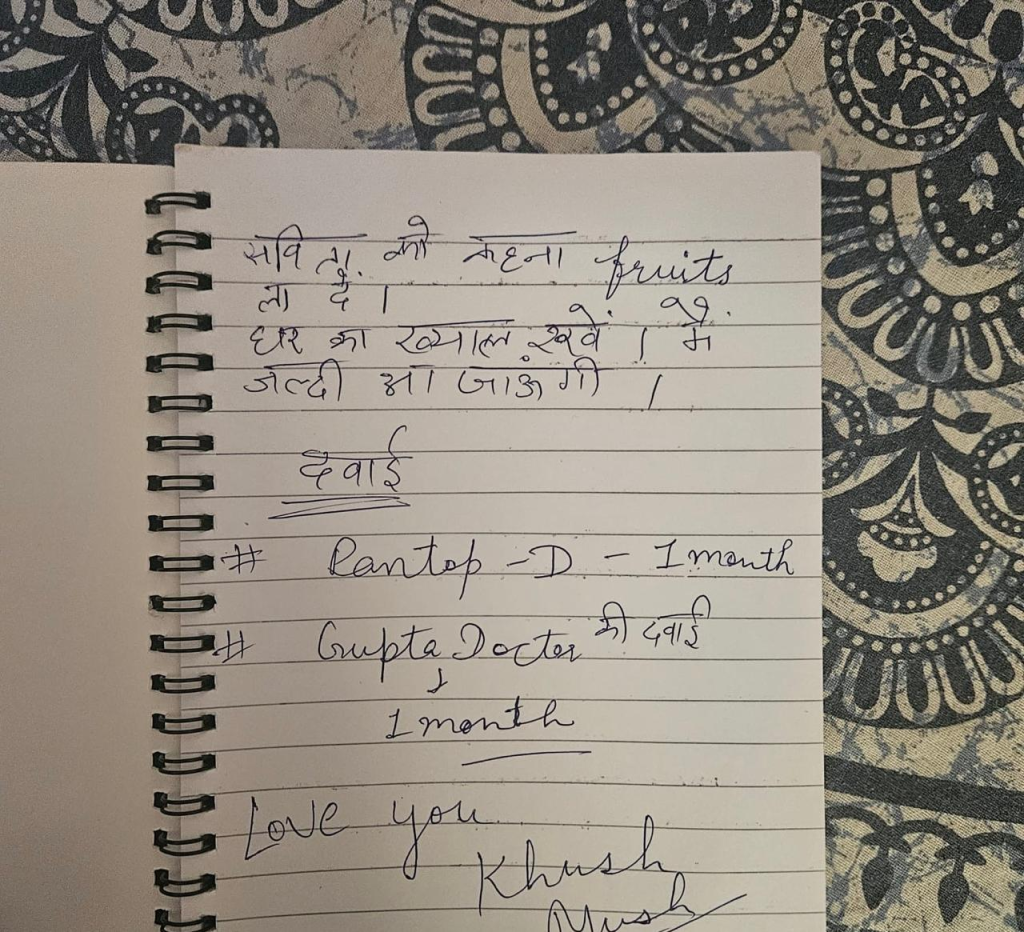 सविता को कहना fruits
ला दे ।
घर का ख्याल रखें । में
जल्दी आ जाऊंगी ।
दवाई
# Pantop - D - 1 month
# Gupta Doctor की दवाई
↓
1 month
Love you
Khush